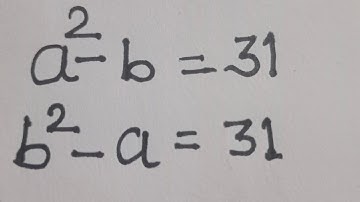 a² - b = 31
b² - a = 31